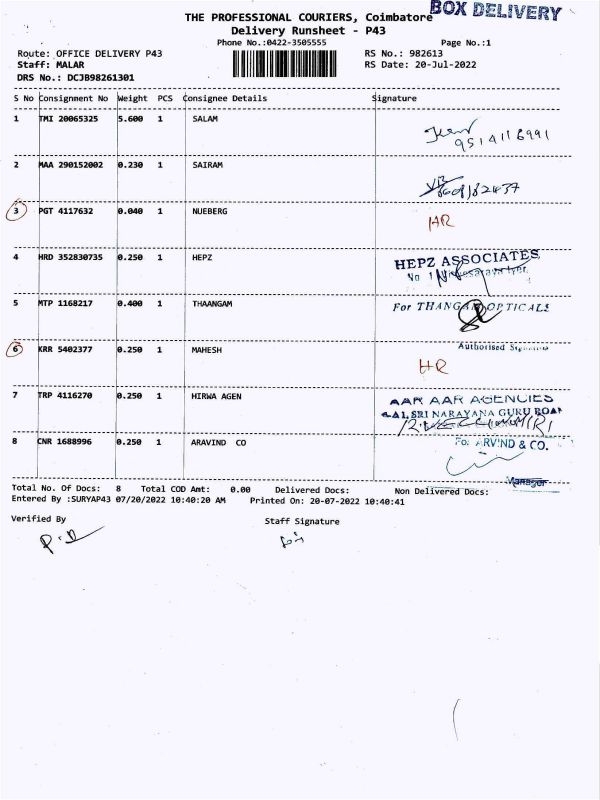 BOX DELIVERY
THE PROFESSIONAL COURIERS, Coimbatore
Delivery Runsheet - P43
Phone No.:0422-3505555 Page No.:1
Route: OFFICE DELIVERY P43 RS No.: 982613
Staff: MALAR RS Date: 20-Jul-2022
DRS No.: DCJB98261301
S No Consignment No Weight PCS Consignee Details Signature
1 TMI 20065325 5.600 1 SALAM
9514116991
2 MAA 290152002 0.230 1 SAIRAM
3 PGT 4117632 0.040 1 NUEBERG HR
4 HRD 352830735 0.250 1 HEPZ HEPZ ASSOCIATES
No 1
5 MTP 1168217 0.400 1 THAANGAM For THANGAM OPTICALS
Authorised
6 KRR 5402377 0.250 1 MAHESH HR
7 TRP 4116270 0.250 1 HIRWA AGEN AAR AAR AGENCIES
SRI NARAYANA GURU ROAD
8 CNR 1688996 0.250 1 ARAVIND CO For ARVIND & CO.
Manager
Total No. Of Docs: 8 Total COD Amt: 0.00 Delivered Docs: Non Delivered Docs:
Entered By :SURYAP43 07/20/2022 10:40:20 AM Printed On: 20-07-2022 10:40:41
Verified By Staff Signature